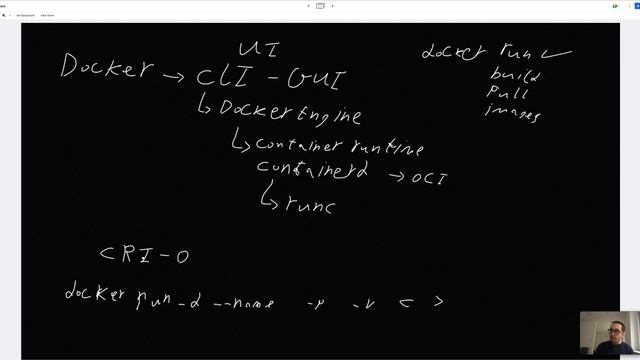 UI
Docker → CLI - GUI
↳ Docker Engine
↳ Container runtime
containerd → OCI
↳ runc
docker run ✓
build
Pull
images
CRI-O
docker run -d --name -p -v < >